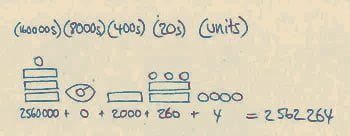 (160000s) (8000s) (400s) (20s) (units)
2560000 + 0 + 2000 + 260 + 4 = 2562264